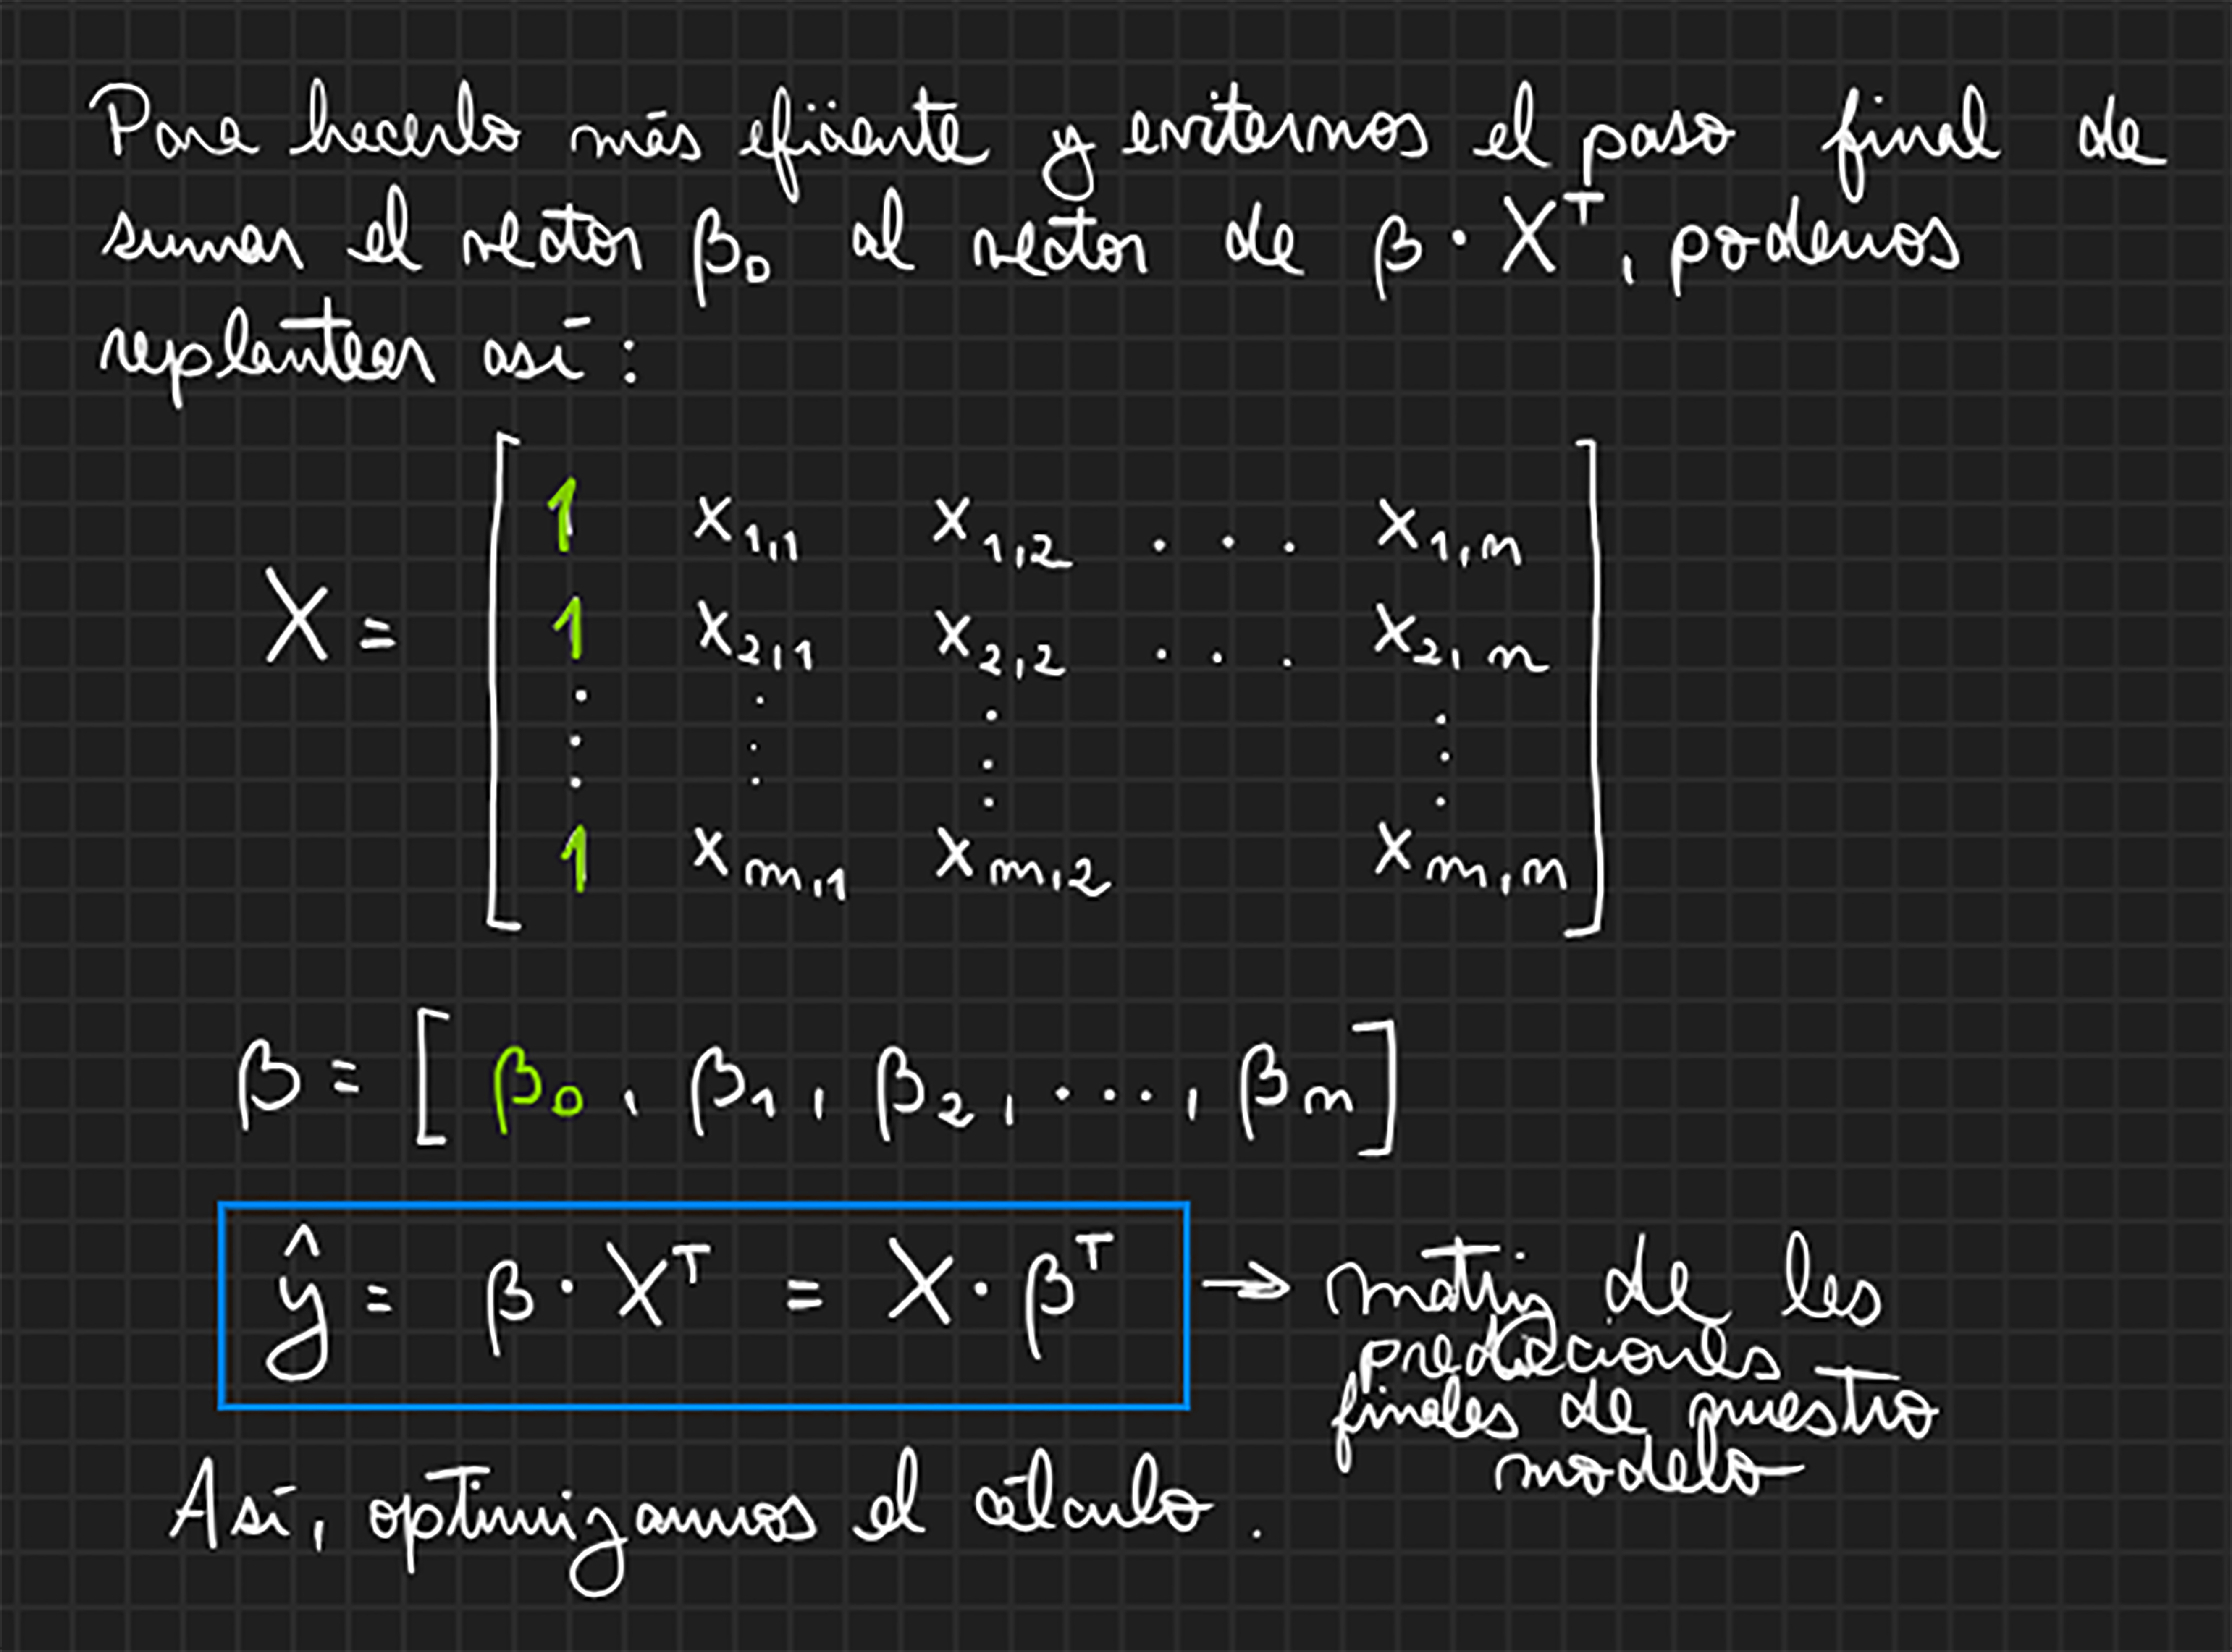 Para hacerlo más eficiente y evitarnos el paso final de
sumar el vector β₀ al vector de β · Xᵀ, podemos
replantear así:
X = [ 1 x₁,₁ x₁,₂ . . . x₁,ₙ
1 x₂,₁ x₂,₂ . . . x₂,ₙ
⋮ ⋮ ⋮ ⋮
1 xₘ,₁ xₘ,₂ xₘ,ₙ ]
β = [ β₀, β₁, β₂, ..., βₙ ]
ŷ = β · Xᵀ = X · βᵀ → matriz de las
predicciones
finales de nuestro
modelo
Así, optimizamos el cálculo.